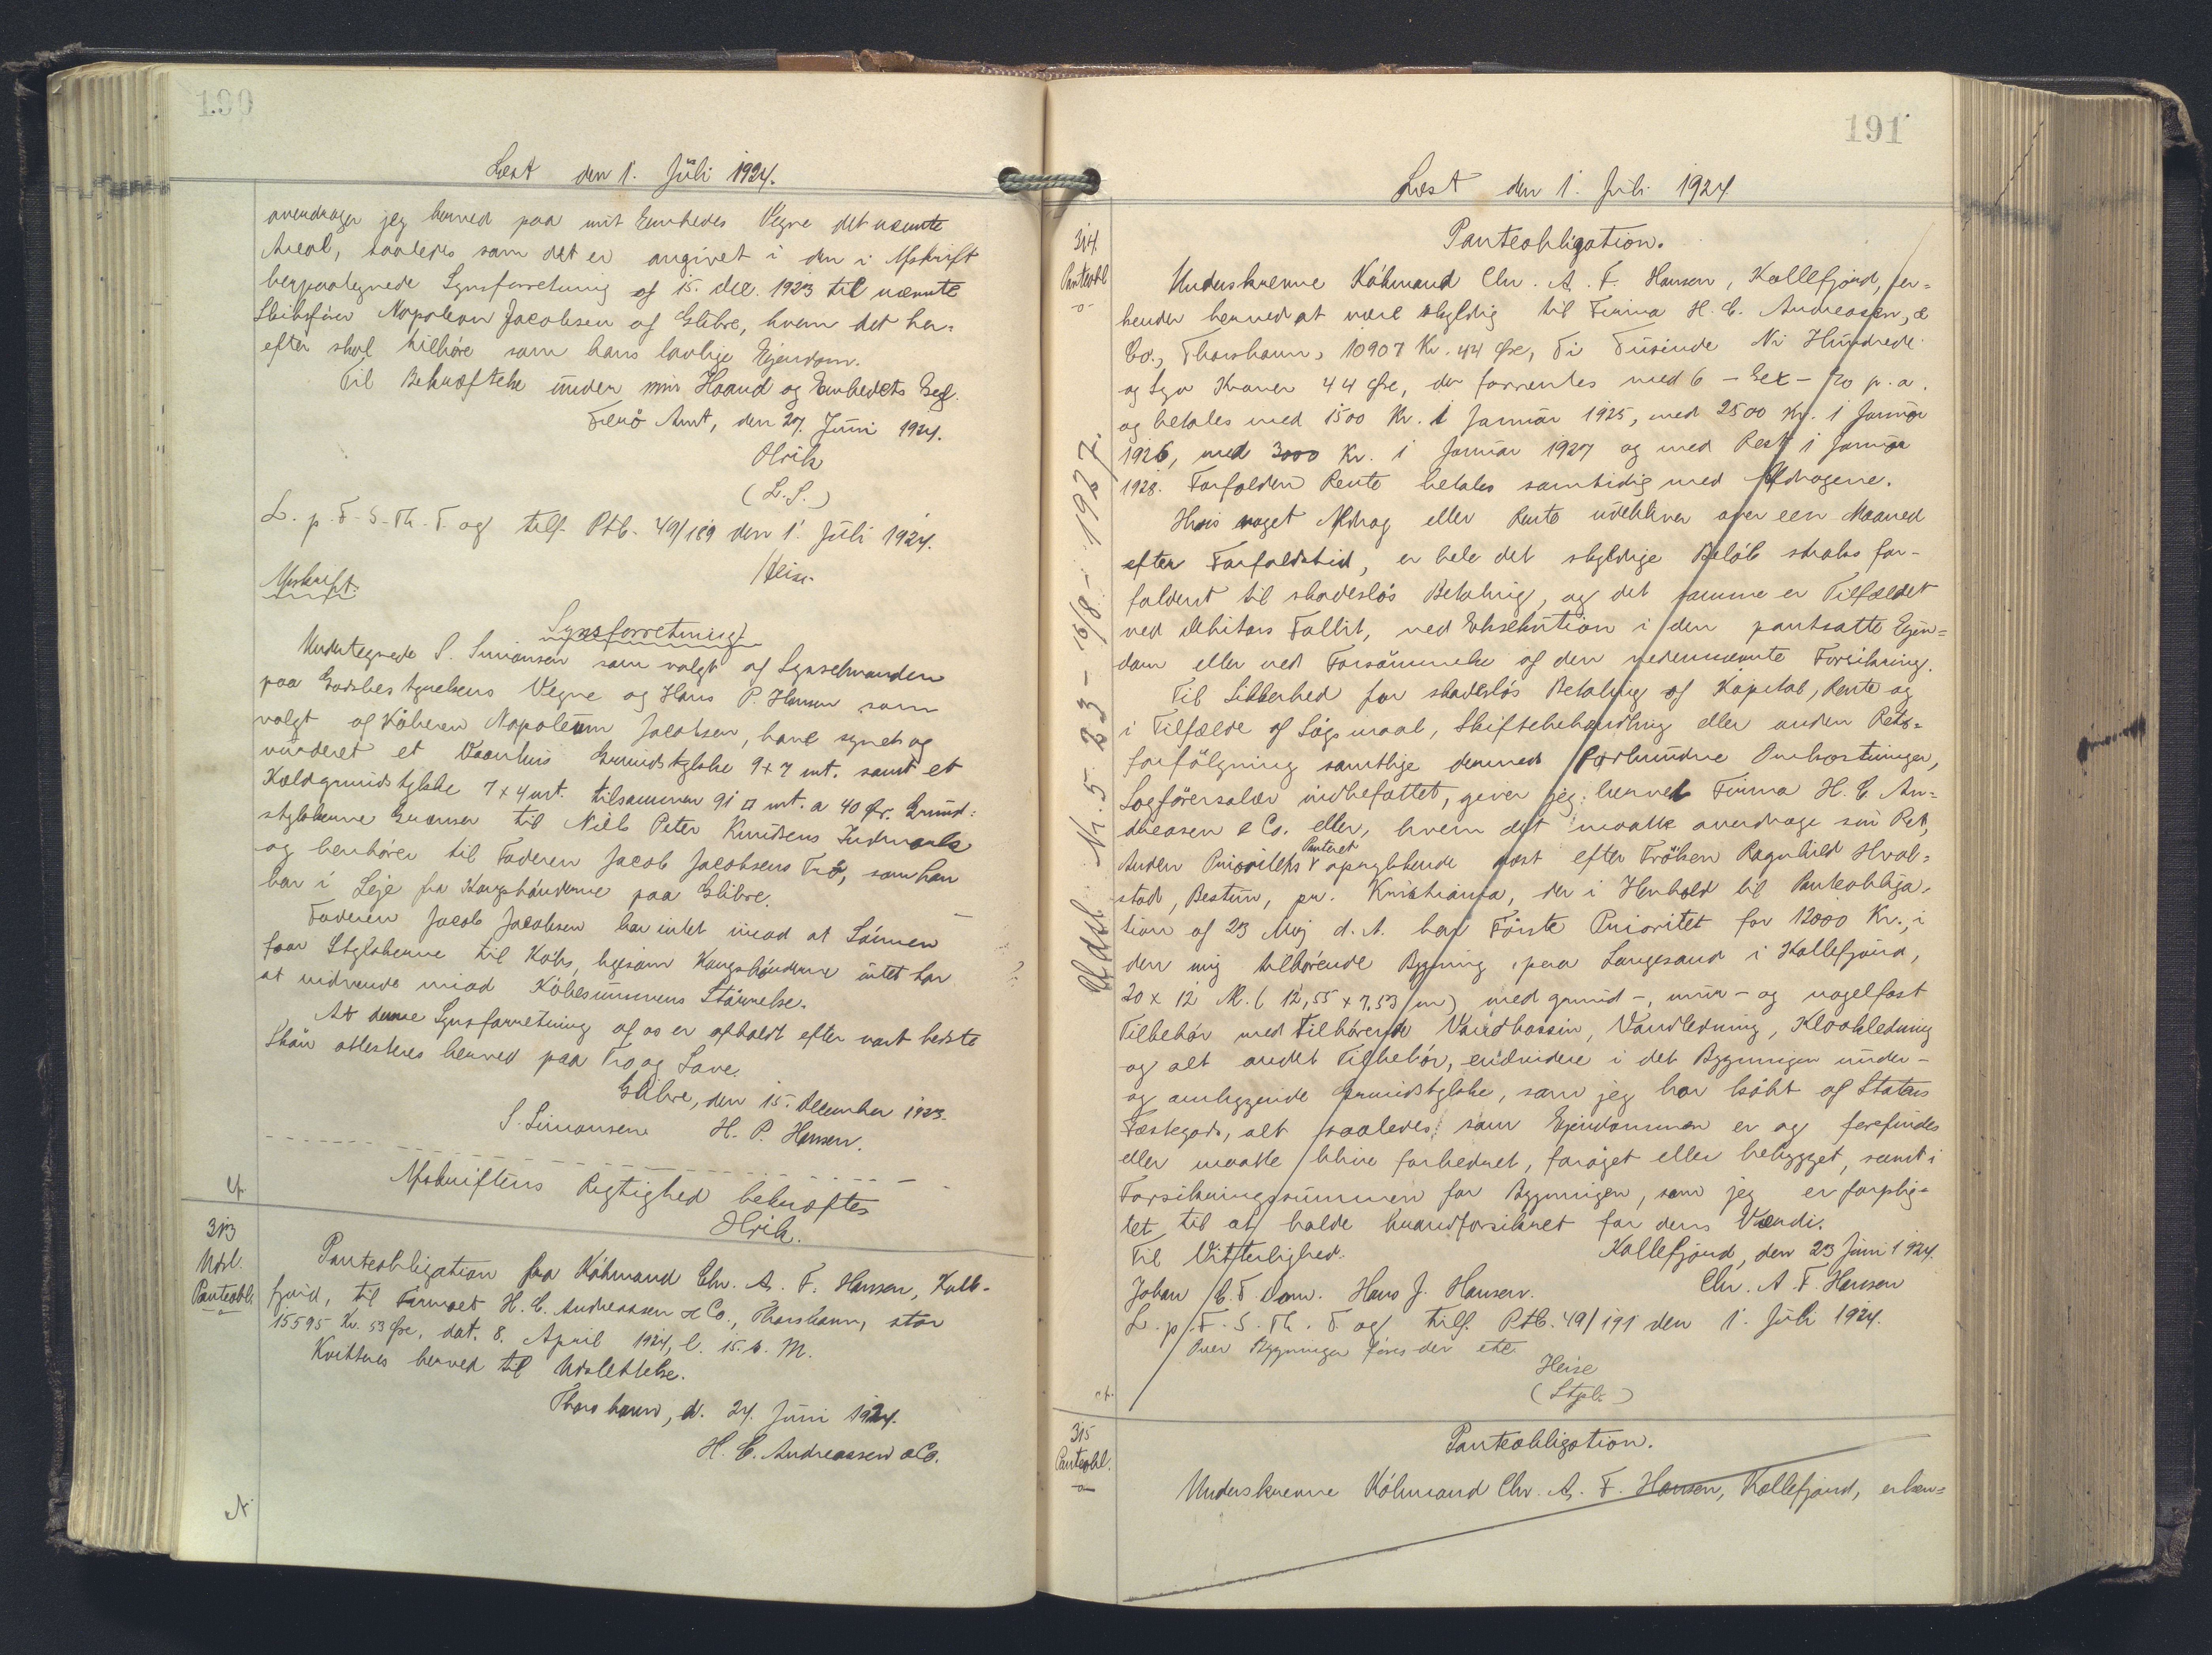 190
Læst den 1. Juli 1924.
overdrager jeg herved paa mit Embedes Vegne det nævnte
Areal, saaledes som det er angivet i den i Afskrift
herpaategnede Synsforretning af 15. dec. 1923 til nævnte
Skibsfører Napoleon Jacobsen af Glibre, hvem det her-
efter skal tilhøre som hans lovlige Ejendom.
Til Bekræftelse under min Haand og Embedets Segl.
Færø Amt, den 27. Juni 1924.
Olrik
(L.S.)
L. p. F. S. Th. T. og tilf. Ptb. 49/189 den 1. Juli 1924.
Heise
Afskrift.
Synsforretning
Undertegnede S. Simonsen som valgt af Sysselmanden
paa Godsbestyrelsens Vegne og Hans P. Hansen som
valgt af Køberen Napoleon Jacobsen, have synet og
vurderet et Vaanhus Grundstykke 9 x 7 mt. samt et
Kældgrundstykke 7 x 4 mt. tilsammen 91 □ mt. a 40 Ør. Grund-
stykkerne Grænser til Niels Peter Knudsens Indmark
og henhører til Faderen Jacob Jacobsens Trø, som han
har i Leje fra Kongsbønderne paa Glibre.
Faderen Jacob Jacobsen har intet imod at Sønnen
faar Stykkerne til Købs, ligesom Kongsbønderne intet har
at indvende imod Købesummens Størrelse.
At denne Synsforretning af os er afholdt efter vort bedste
Skøn attesteres herved paa Tro og Love.
Glibre, den 15. December 1923.
S. Simonsen H. P. Hansen.
Afskriftens Rigtighed bekræftes
Olrik.
313
Udsl.
Panteobl.
Panteobligation fra Købmand Chr. A. F. Hansen, Kolle-
fjord, til Firmaet H. C. Andreassen & Co., Thorshavn, stor
15595 Kr. 53 Øre, dat. 8. April 1924, l. 15. s. M.
Kvitteres herved til Udslettelse.
Thorshavn, d. 24. Juni 1924.
H. C. Andreassen & Co.
191
Læst den 1. Juli 1924
314.
Panteobl
Panteobligation.
Underskrevne Købmand Chr. A. F. Hansen, Kollefjord, er-
kender herved at være skyldig til Firma H. C. Andreasen, &
Co., Thorshavn, 10907 Kr. 44 Øre, Ti Tusinde Ni Hundrede
og Syv Kroner 44 Øre, der forrentes med 6 - Sex - % p. a.
og betales med 1500 Kr. i Januar 1925, med 2500 Kr. i Januar
1926, med 3000 Kr. i Januar 1927 og med Rest i Januar
1928. Forfalden Rente betales samtidig med Afdragene.
Hvis noget Afdrag eller Rente udebliver over een Maaned
efter Forfaldstid, er hele det skyldige Beløb straks for-
faldent til skadesløs Betaling, og det samme er Tilfældet
ved Debitors Fallit, ved Eksekution i den pantsatte Ejen-
dom eller ved Forsømmelse af den nedennævnte Forsikring.
Til Sikkerhed for skadesløs Betaling af Kapital, Rente og
i Tilfælde af Søgsmaal, Skiftebehandling eller anden Rets-
forfølgning samtlige dermed forbundne Omkostninger,
Sagførersalær indbefattet, giver jeg herved Firma H. C An-
dreasen & Co. eller, hvem det maatte overdrage sin Ret,
Anden Prioritets Panteret oprykkende næst efter Frøken Ragnhild Hval-
stad, Bestum, pr. Kristiania, der i Henhold til Panteobliga-
tion af 23 Maj d. A. har Første Prioritet for 12000 Kr., i
den mig tilhørende Bygning, paa Langesand i Kollefjord,
20 x 12 Al. (12,55 x 7,53 m) med grund-, mur- og nagelfast
Tilbehør med tilhørende Vandbassin, Vandledning, Kloakledning
og alt andet Tilbehør, endvidere i det Bygningen under-
og omliggende Grundstykke, som jeg har købt af Statens
Fæstegods, alt saaledes som Ejendommen er og forefindes
eller maatte blive forbedret, forøget eller bebygget, samt i
Forsikringssummen for Bygningen, som jeg er forplig-
tet til at holde brandforsikret for dens Værdi.
Til Vitterlighed. Kollefjord, den 23 Juni 1924.
Johan C. F. Dam. Hans J. Hansen. Chr. A. F. Hansen
L. p. F. S. Th. T. og tilf. Ptb. 49/191 den 1. Juli 1924.
Over Bygningen føres der etc
Heise
(Stplr)
Udsl. Nr. 5. 23 - 16/8 - 1927.
315
Panteobl.
Panteobligation.
Underskrevne Købmand Chr. A. F. Hansen, Kollefjord, erken-